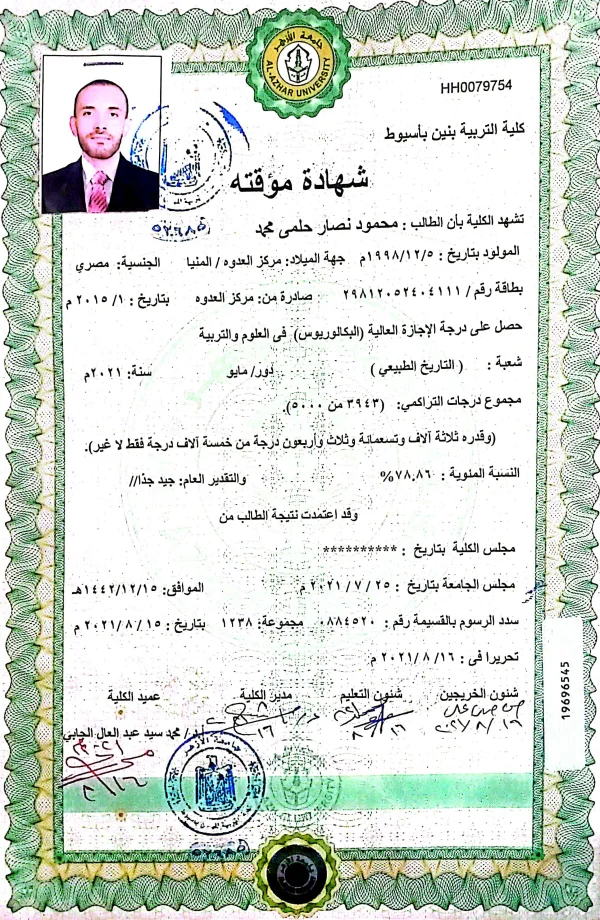 جامعة الأزهر
AL-AZHAR UNIVERSITY
HH0079754
كلية التربية بنين بأسيوط
شهادة مؤقته
تشهد الكلية بأن الطالب : محمود نصار حلمى محمد
المولود بتاريخ : ١٩٩٨/١٢/٥م جهة الميلاد: مركز العدوه / المنيا الجنسية: مصري
بطاقة رقم / ٢٩٨١٢٠٥٢٤٠٤١١١ صادرة من: مركز العدوه بتاريخ : ١/ ٢٠١٥ م
حصل على درجة الإجازة العالية (البكالوريوس) فى العلوم والتربية
شعبة : ( التاريخ الطبيعي ) دور/ مايو سنة: ٢٠٢١م
مجموع درجات التراكمي: (٣٩٤٣ من ٥٠٠٠).
(وقدره ثلاثة آلاف وتسعمائة وثلاث وأربعون درجة من خمسة آلاف درجة فقط لا غير).
النسبة المئوية : ٧٨,٨٦% والتقدير العام: جيد جدا//
وقد اعتمدت نتيجة الطالب من
مجلس الكلية بتاريخ : **********
مجلس الجامعة بتاريخ : ٢٥ / ٧ / ٢٠٢١ م الموافق: ١٤٤٢/١٢/١٥هـ
سدد الرسوم بالقسيمة رقم : ٠٨٨٤٥٢٠ مجموعة: ١٢٣٨ بتاريخ : ١٥ / ٨ / ٢٠٢١ م
تحريرا فى : ١٦/ ٨ /٢٠٢١ م
شئون الخريجين شئون التعليم مدير الكلية عميد الكلية
أ.د/ محمد سيد عبد العال الجابي
19696545